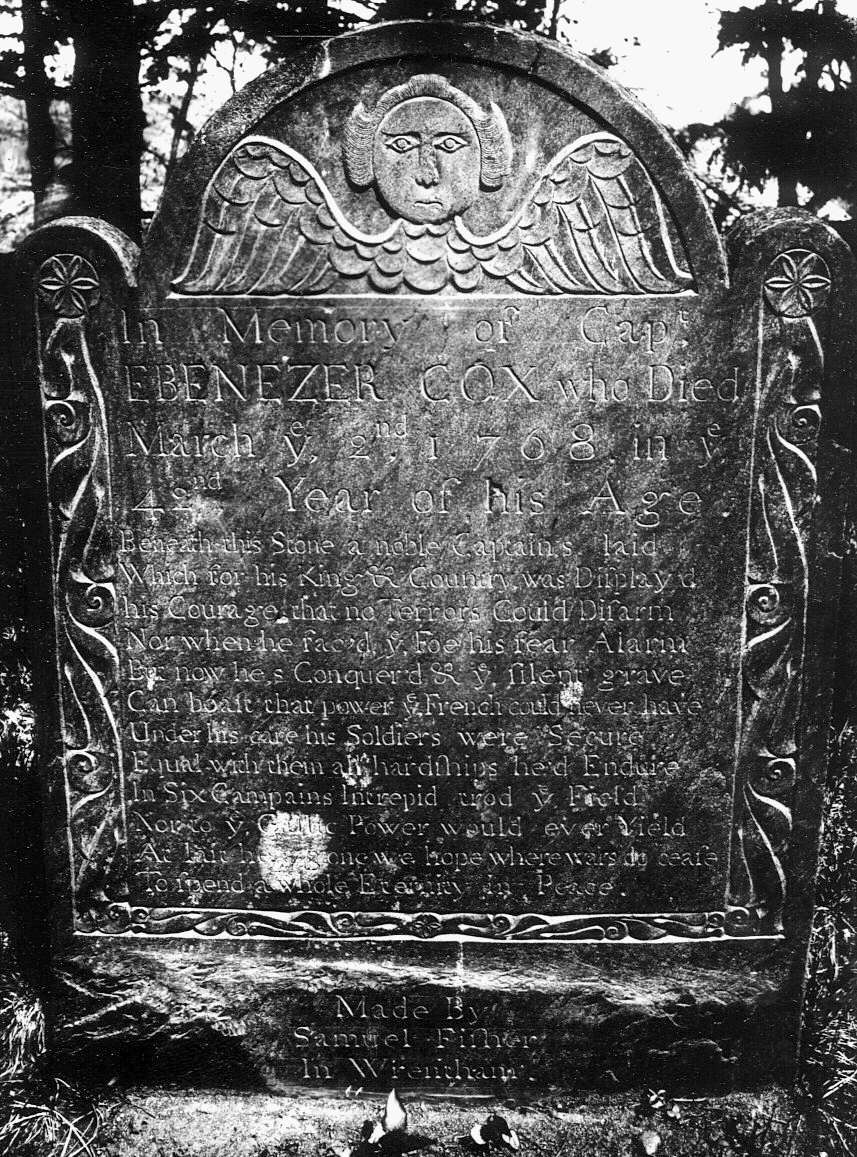 In Memory of Capᵗ.
EBENEZER COX who Died
March yᵉ, 2ⁿᵈ. 1768. in yᵉ
42ⁿᵈ Year of his Age.
Beneath this Stone a noble Captain,s laid
Which for his King & Country, was Diſplay'd
his Courage that no Terrors Could Diſarm
Nor when he fac'd, yᵉ, Foe his fear Alarm
But now he,s Conquer'd & yᵉ, ſilent grave
Can boaſt that power yᵉ, French could never have
Under his care his Soldiers were Secure
Equal with them all hardſhips he'd Endure
In Six Campains Intrepid trod yᵉ Field
Nor to yᵉ, Gallic Power would ever Yield
At laſt he,s gone we hope where wars do ceaſe
To ſpend a whole Eternity in Peace.
Made By
Samuel Fiſher
In Wrentham.